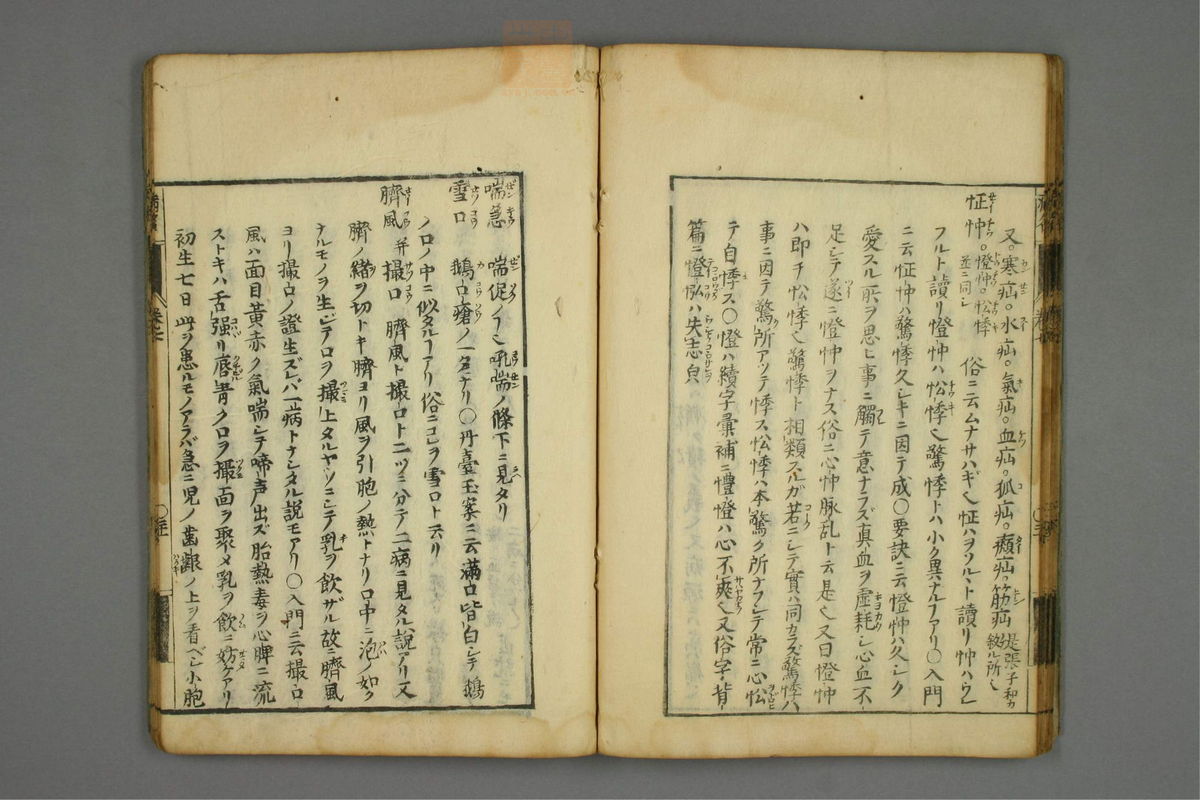 又。寒疝。水疝。氣疝。血疝。狐疝。癩疝。筋疝 是張子和カ敘ル所也
怔忡。㦂忡。忪悸 並ニ同シ 俗ニ云ムナサハギ也怔ハヲソルヽト讀リ忡ハウレ
フルト讀リ㦂忡ハ忪悸也驚悸トハ小ク異ナルヿアリ○入門
ニ云怔忡ハ驚悸久シキニ因テ成○要訣ニ云㦂忡ハ久シク
愛スル所ヲ思ヒ事ニ觸テ意ナラズ真血ヲ虚耗シ心血不
足シテ遂ニ㦂忡ヲナス俗ニ心忡脉乱ト云是也又曰㦂忡
ハ即チ忪悸也驚悸ト相類スルガ若ニシテ實ハ同カラズ驚悸ハ
事ニ因テ驚所アツテ悸ス忪悸ハ本驚ク所ナフシテ常ニ心忪
テ自悸ス○㦂ハ續字彙補ニ㦂ハ心不爽也又俗字ノ背
篇ニハ失志皃
喘急 喘促ノヿ也吼喘ノ條下ニ見タリ
雪口 鵝口瘡ノ一名ナリ○丹臺玉案ニ云滿口皆白シテ鵝
ノ口ノ中ニ似タルヿアリ俗ニコレヲ雪口ト云リ
臍風 并撮口 臍風ト撮口ト二ツニ分テ二病ニ見タル說アリ又
臍ノ緒ヲ切トキ臍ヨリ風ヲ引胞ノ熱トナリ口中ニ泡ノ如ク
ナルモノヲ生ジテ口ヲ撮上タルヤウニシテ乳ヲ飲ザル故ニ臍風
ヨリ撮口ノ證生ズレバ一病トナシタル說モアリ○入門ニ云撮口
風ハ面目黃赤ク氣喘シテ啼声出ズ胎熱毒ヲ心脾ニ流
ストキハ舌强リ唇青ク口ヲ撮面ヲ聚メ乳ヲ飲ニ妨ゲアリ
初生七日此ヲ患ルモノアラバ急ニ児ノ歯齦ノ上ヲ看ベシ小胞